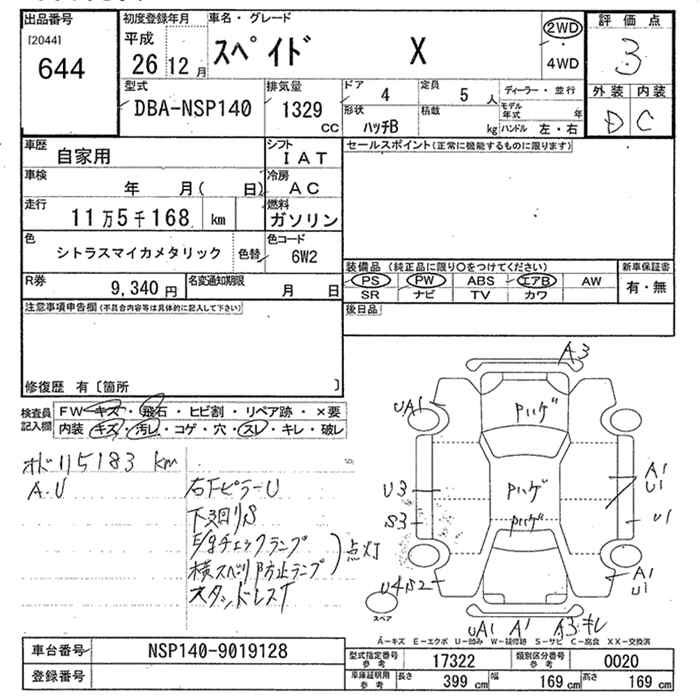 出品番号
[2044]
644
初度登録年月
平成
26 12 月
車名・グレード
スペイド X
2WD
4WD
評価点
3
外装 内装
D C
型式
DBA-NSP140
排気量
1329
CC
ドア 4
形状
ハッチB
定員 5 人
積載
kg
ディーラー・並行
モデル年式 年
ハンドル 左・右
車歴
自家用
シフト
IAT
車検
年 月( 日)
冷房
AC
走行
11万5千168 km
燃料
ガソリン
色
シトラスマイカメタリック
色替
色コード
6W2
R券
9,340 円
名変通知期限
月 日
注意事項申告欄(不具合内容等は具体的に記入して下さい)
修復歴 有〔箇所 〕
セールスポイント(正常に機能するものに限ります)
装備品 (純正品に限り○をつけてください)
PS PW ABS エアB AW
SR ナビ TV カワ
新車保証書
有・無
後日品
検査員記入欄
FW キズ・飛石・ヒビ割・リペア跡・×要
内装 キズ・汚レ・コゲ・穴・スレ・キレ・破レ
オド115183 km
A.U
右下ピラーU
下廻りS
E/gチェックランプ
横スベリ防止ランプ
点灯
スタッドレスT
A3
UA1
Pハゲ
U3
Pハゲ
A1
U1
S3
Pハゲ
U1
U4S2
A1
U1
スペア
UA1 A1 A3キレ
A-キズ E-エクボ U-凹み W-補修跡 S-サビ C-腐食 XX-交換済
車台番号
NSP140-9019128
登録番号
型式指定番号
参考
17322
類別区分番号
参考
0020
車庫証明用
参考
長さ 399 cm
幅 169 cm
高さ 169 cm